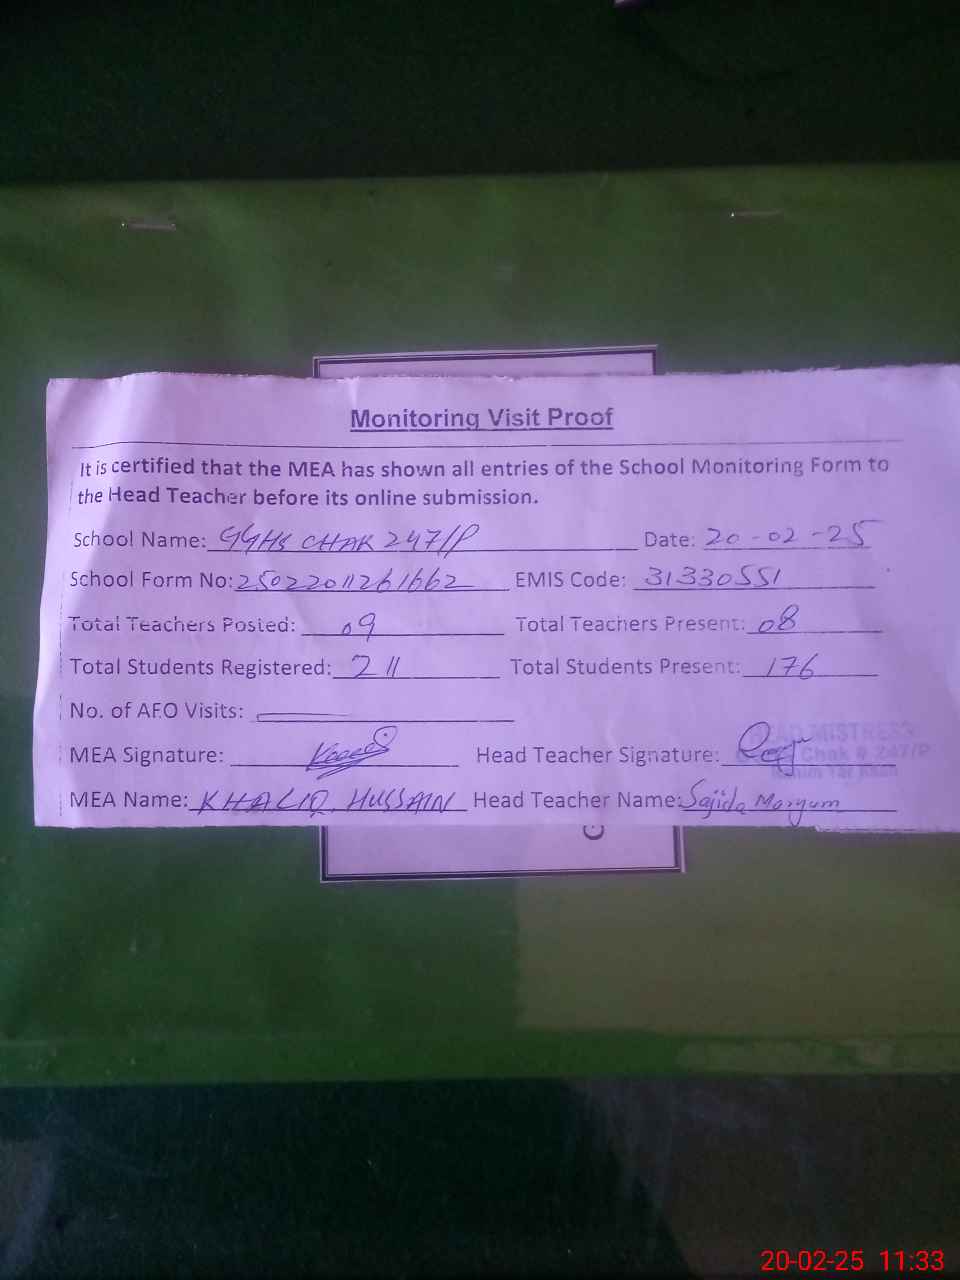 Monitoring Visit Proof
It is certified that the MEA has shown all entries of the School Monitoring Form to
the Head Teacher before its online submission.
School Name: GGHS CHAK 247/P Date: 20-02-25
School Form No: 25022011261662 EMIS Code: 31330551
Total Teachers Posted: 09 Total Teachers Present: 08
Total Students Registered: 211 Total Students Present: 176
No. of AEO Visits:
HEAD MISTRESS
MEA Signature: Head Teacher Signature: Chak # 247/P
Rahim Yar Khan
MEA Name: KHALIQ HUSSAIN Head Teacher Name: Sajida Maryum
20-02-25 11:33